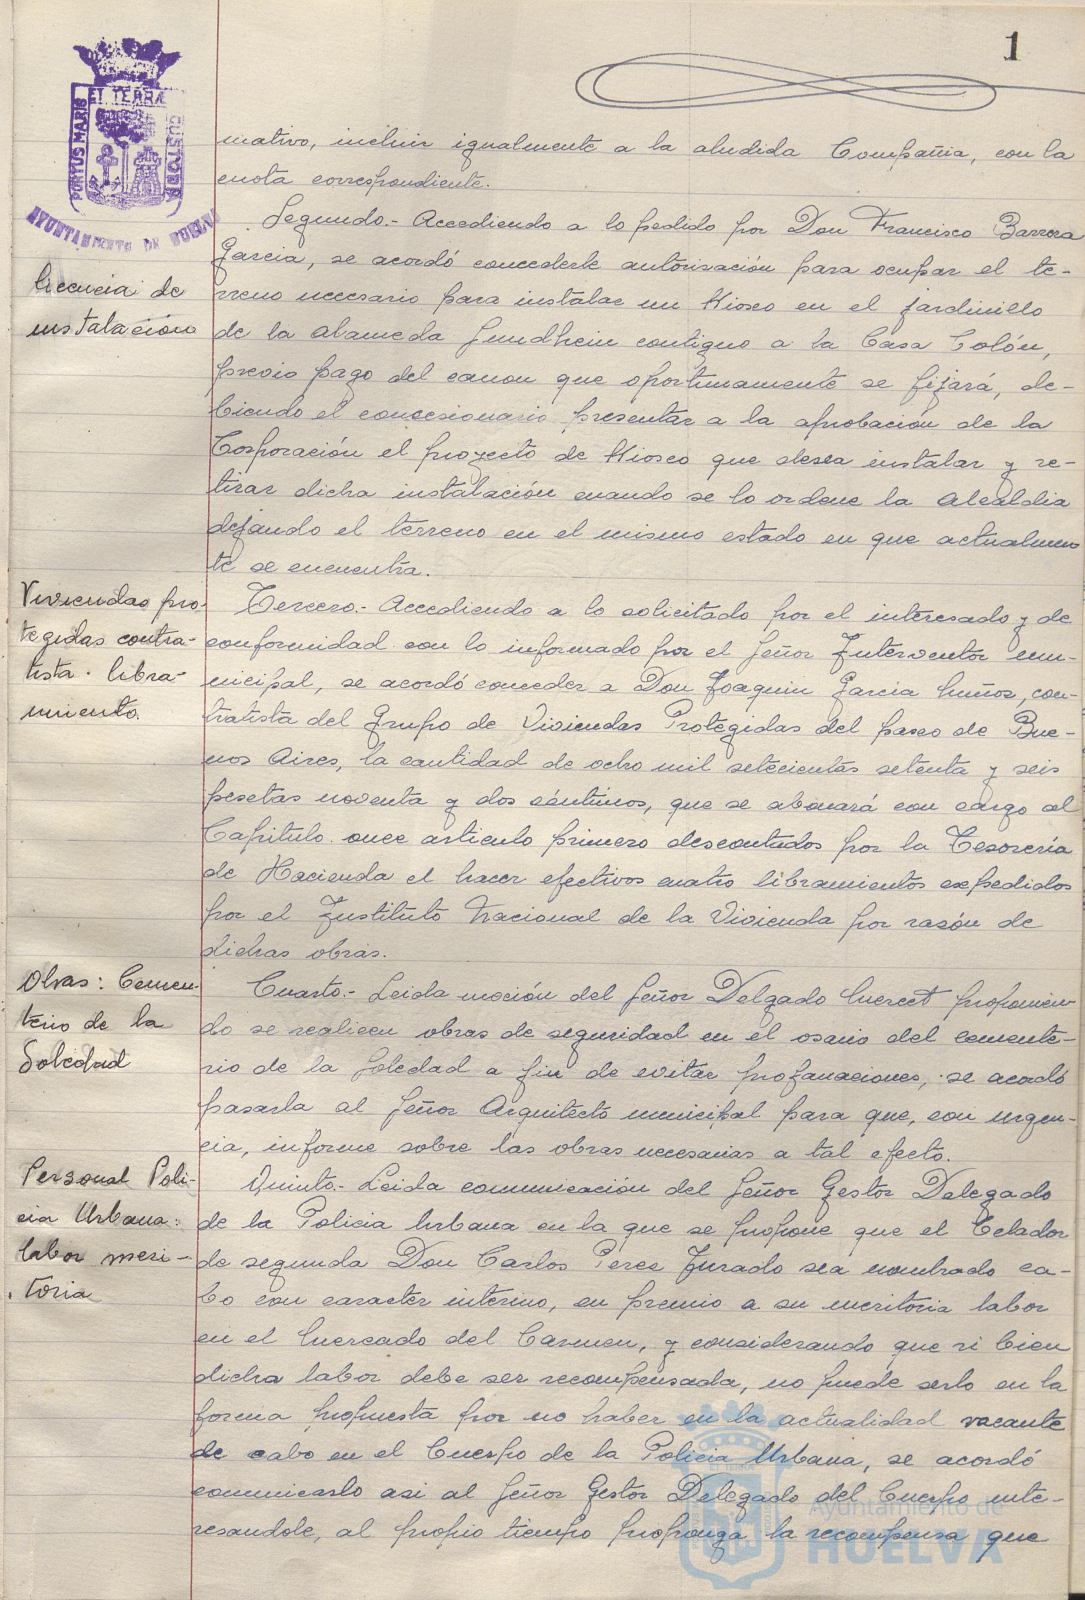 1
PORTUS MARIS
ET TERRÆ
CUSTODIA
AYUNTAMIENTO DE HUELVA
mativo, incluir igualmente a la aludida Compañia, con la
cuota correspondiente.
Licencia de
instalación
Segundo.- Accediendo a lo pedido por Don Francisco Barrera
Garcia, se acordó concederle autorización para ocupar el te-
rreno necesario para instalar un Kiosco en el jardinillo
de la Alameda Sundheim contiguo a la Casa Colón,
previo pago del canon que oportunamente se fijará, de-
biendo el concesionario presentar a la aprobación de la
Corporación el proyecto de Kiosco que desea instalar y re-
tirar dicha instalación cuando se lo ordene la Alcaldia
dejando el terreno en el mismo estado en que actualmen
te se encuentra.
Viviendas pro-
tegidas contra-
tista. libra-
miento.
Tercero.- Accediendo a lo solicitado por el interesado y de
conformidad con lo informado por el Señor Interventor mu-
nicipal, se acordó conceder a Don Joaquin Garcia Muñoz, con-
tratista del Grupo de Viviendas Protegidas del paseo de Bue-
nos Aires, la cantidad de ocho mil setecientas setenta y seis
pesetas noventa y dos céntimos, que se abonará con cargo al
Capitulo once articulo primero descontados por la Tesoreria
de Hacienda el hacer efectivos cuatro libramientos expedidos
por el Instituto Nacional de la Vivienda por razón de
dichas obras.
Obras: Cemen-
terio de la
Soledad
Cuarto.- Leida moción del Señor Delgado Mercet proponien-
do se realicen obras de seguridad en el osario del cemente-
rio de la Soledad a fin de evitar profanaciones, se acordó
pasarla al Señor Arquitecto municipal para que, con urgen-
cia, informe sobre las obras necesarias a tal efecto.
Personal Poli-
cia Urbana:
labor meri-
toria
Quinto.- Leida comunicación del Señor Gestor Delegado
de la Policia Urbana en la que se propone que el Celador
de segunda Don Carlos Perez Jurado sea nombrado ca-
bo con caracter interino, en premio a su meritoria labor
en el Mercado del Carmen, y considerando que si bien
dicha labor debe ser recompensada, no puede serlo en la
forma propuesta por no haber en la actualidad vacante
de cabo en el Cuerpo de la Policia Urbana, se acordó
comunicarlo asi al Señor Gestor Delegado del Cuerpo inte-
resandole, al propio tiempo proponga la recompensa que
Ayuntamiento de
HUELVA